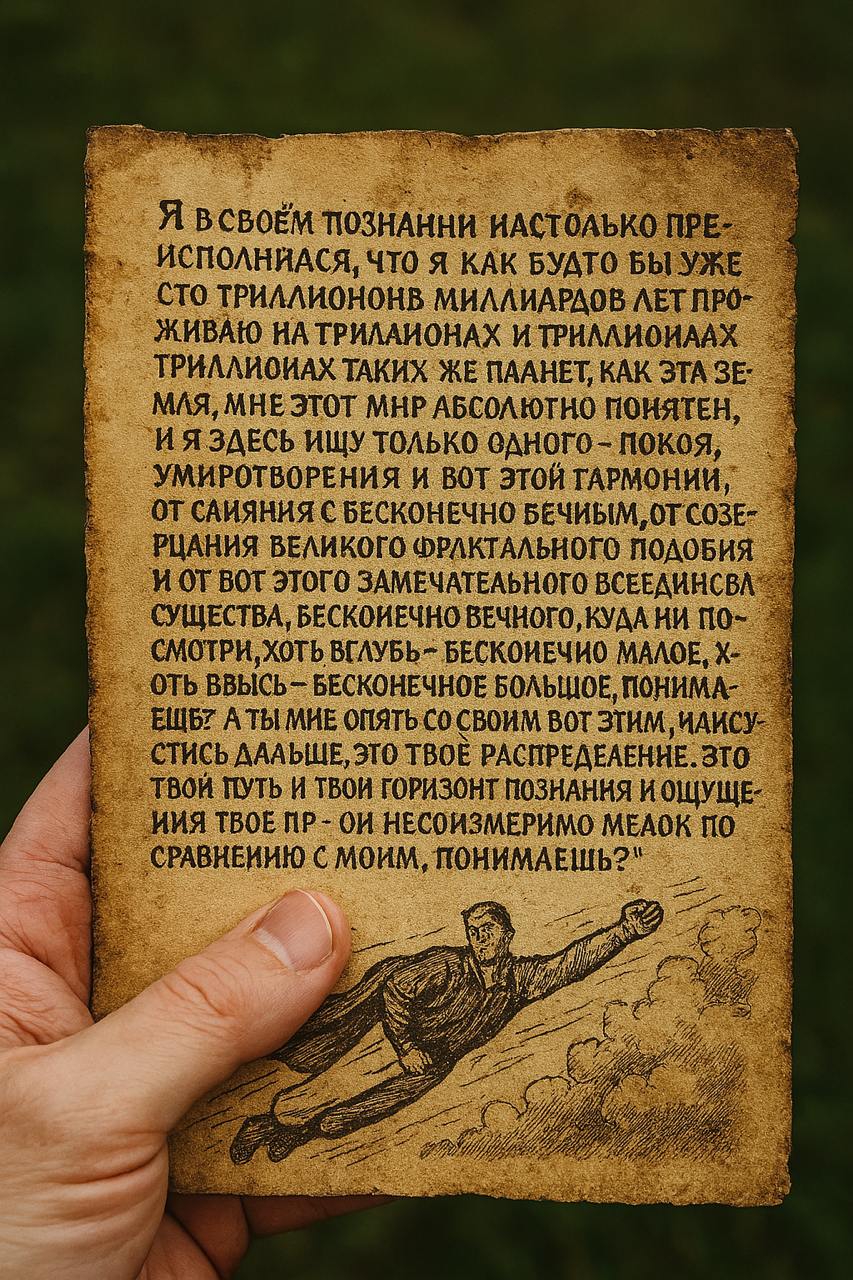 Я В СВОЁМ ПОЗНАННИ ИАСТОЛЬКО ПРЕ-
ИСПОЛНИАСЯ, ЧТО Я КАК БУДТО БЫ УЖЕ
СТО ТРИЛЛИОНОНВ МИЛЛИАРДОВ ЛЕТ ПРО-
ЖИВАЮ НА ТРИЛАИОНАХ И ТРИЛЛИОИААХ
ТРИЛЛИОИАХ ТАКИХ ЖЕ ПААНЕТ, КАК ЭТА ЗЕ-
МЛЯ, МНЕ ЭТОТ МНР АБСОЛЮТНО ПОИЯТЕН,
И Я ЗДЕСЬ ИЩУ ТОЛЬКО ОДНОГО – ПОКОЯ,
УМИРОТВОРЕНИЯ И ВОТ ЭТОЙ ГАРМОНИИ,
ОТ САИЯНИЯ С БЕСКОНЕЧНО БЕЧИЫМ, ОТ СОЗЕ-
РЦАНИЯ ВЕЛИКОГО ФРЛКТАЛЬНОГО ПОДОБИЯ
И ОТ ВОТ ЭТОГО ЗАМЕЧАТЕАЬНОГО ВСЕЕДИНСВЛ
СУЩЕСТВА, БЕСКОИЕЧНО ВЕЧНОГО, КУДА НИ ПО-
СМОТРИ, ХОТЬ ВГЛУБЬ – БЕСКОИЕЧИО МАЛОЕ, Х-
ОТЬ ВВЫСЬ – БЕСКОНЕЧНОЕ БОЛЬШОЕ, ПОНИМА-
ЕЩБ? А ТЫ МИЕ ОПЯТЬ СО СВОИМ ВОТ ЗТИМ, ИАИСУ-
СТИСЬ ДААЬШЕ, ЭТО ТВОЁ РАСПРЕДЕАЕННЕ. ЗТО
ТВОЙ ПУТЬ И ТВОИ ГОРИЗОНТ ПОЗНАНИЯ И ОЩУЩЕ-
ИИЯ ТВОЕ ПР - ОИ НЕСОИЗМЕРИМО МЕАОК ПО
СРАВНЕИИЮ С МОИМ, ПОНИМАЕШЬ?"